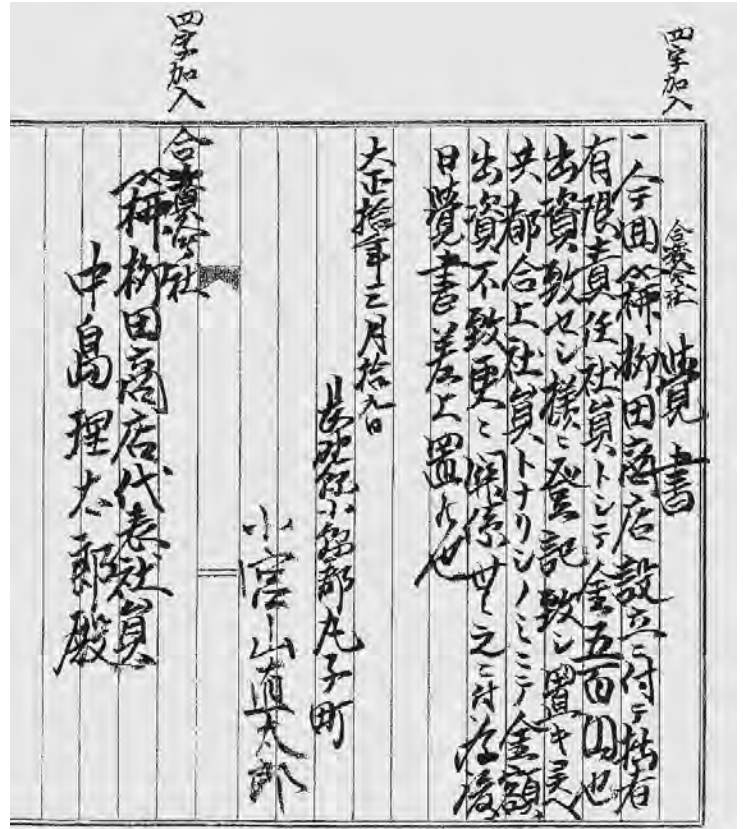 四字加入
覺書
合資会社
一今回柳田商店設立ニ付テ拙者
有限責任社員トシテ金五百円也
出資致セシ様ニ登記致シ置キ候ヘ
共都合上社員トナリシノミニテ金額
出資不致更ニ関係無之ニ付為後
日覺書差上置候也
大正拾年三月拾九日
長野縣小縣郡丸子町
小宮山直太郎
四字加入
合資会社
柳田商店代表社員
中島理太郎殿